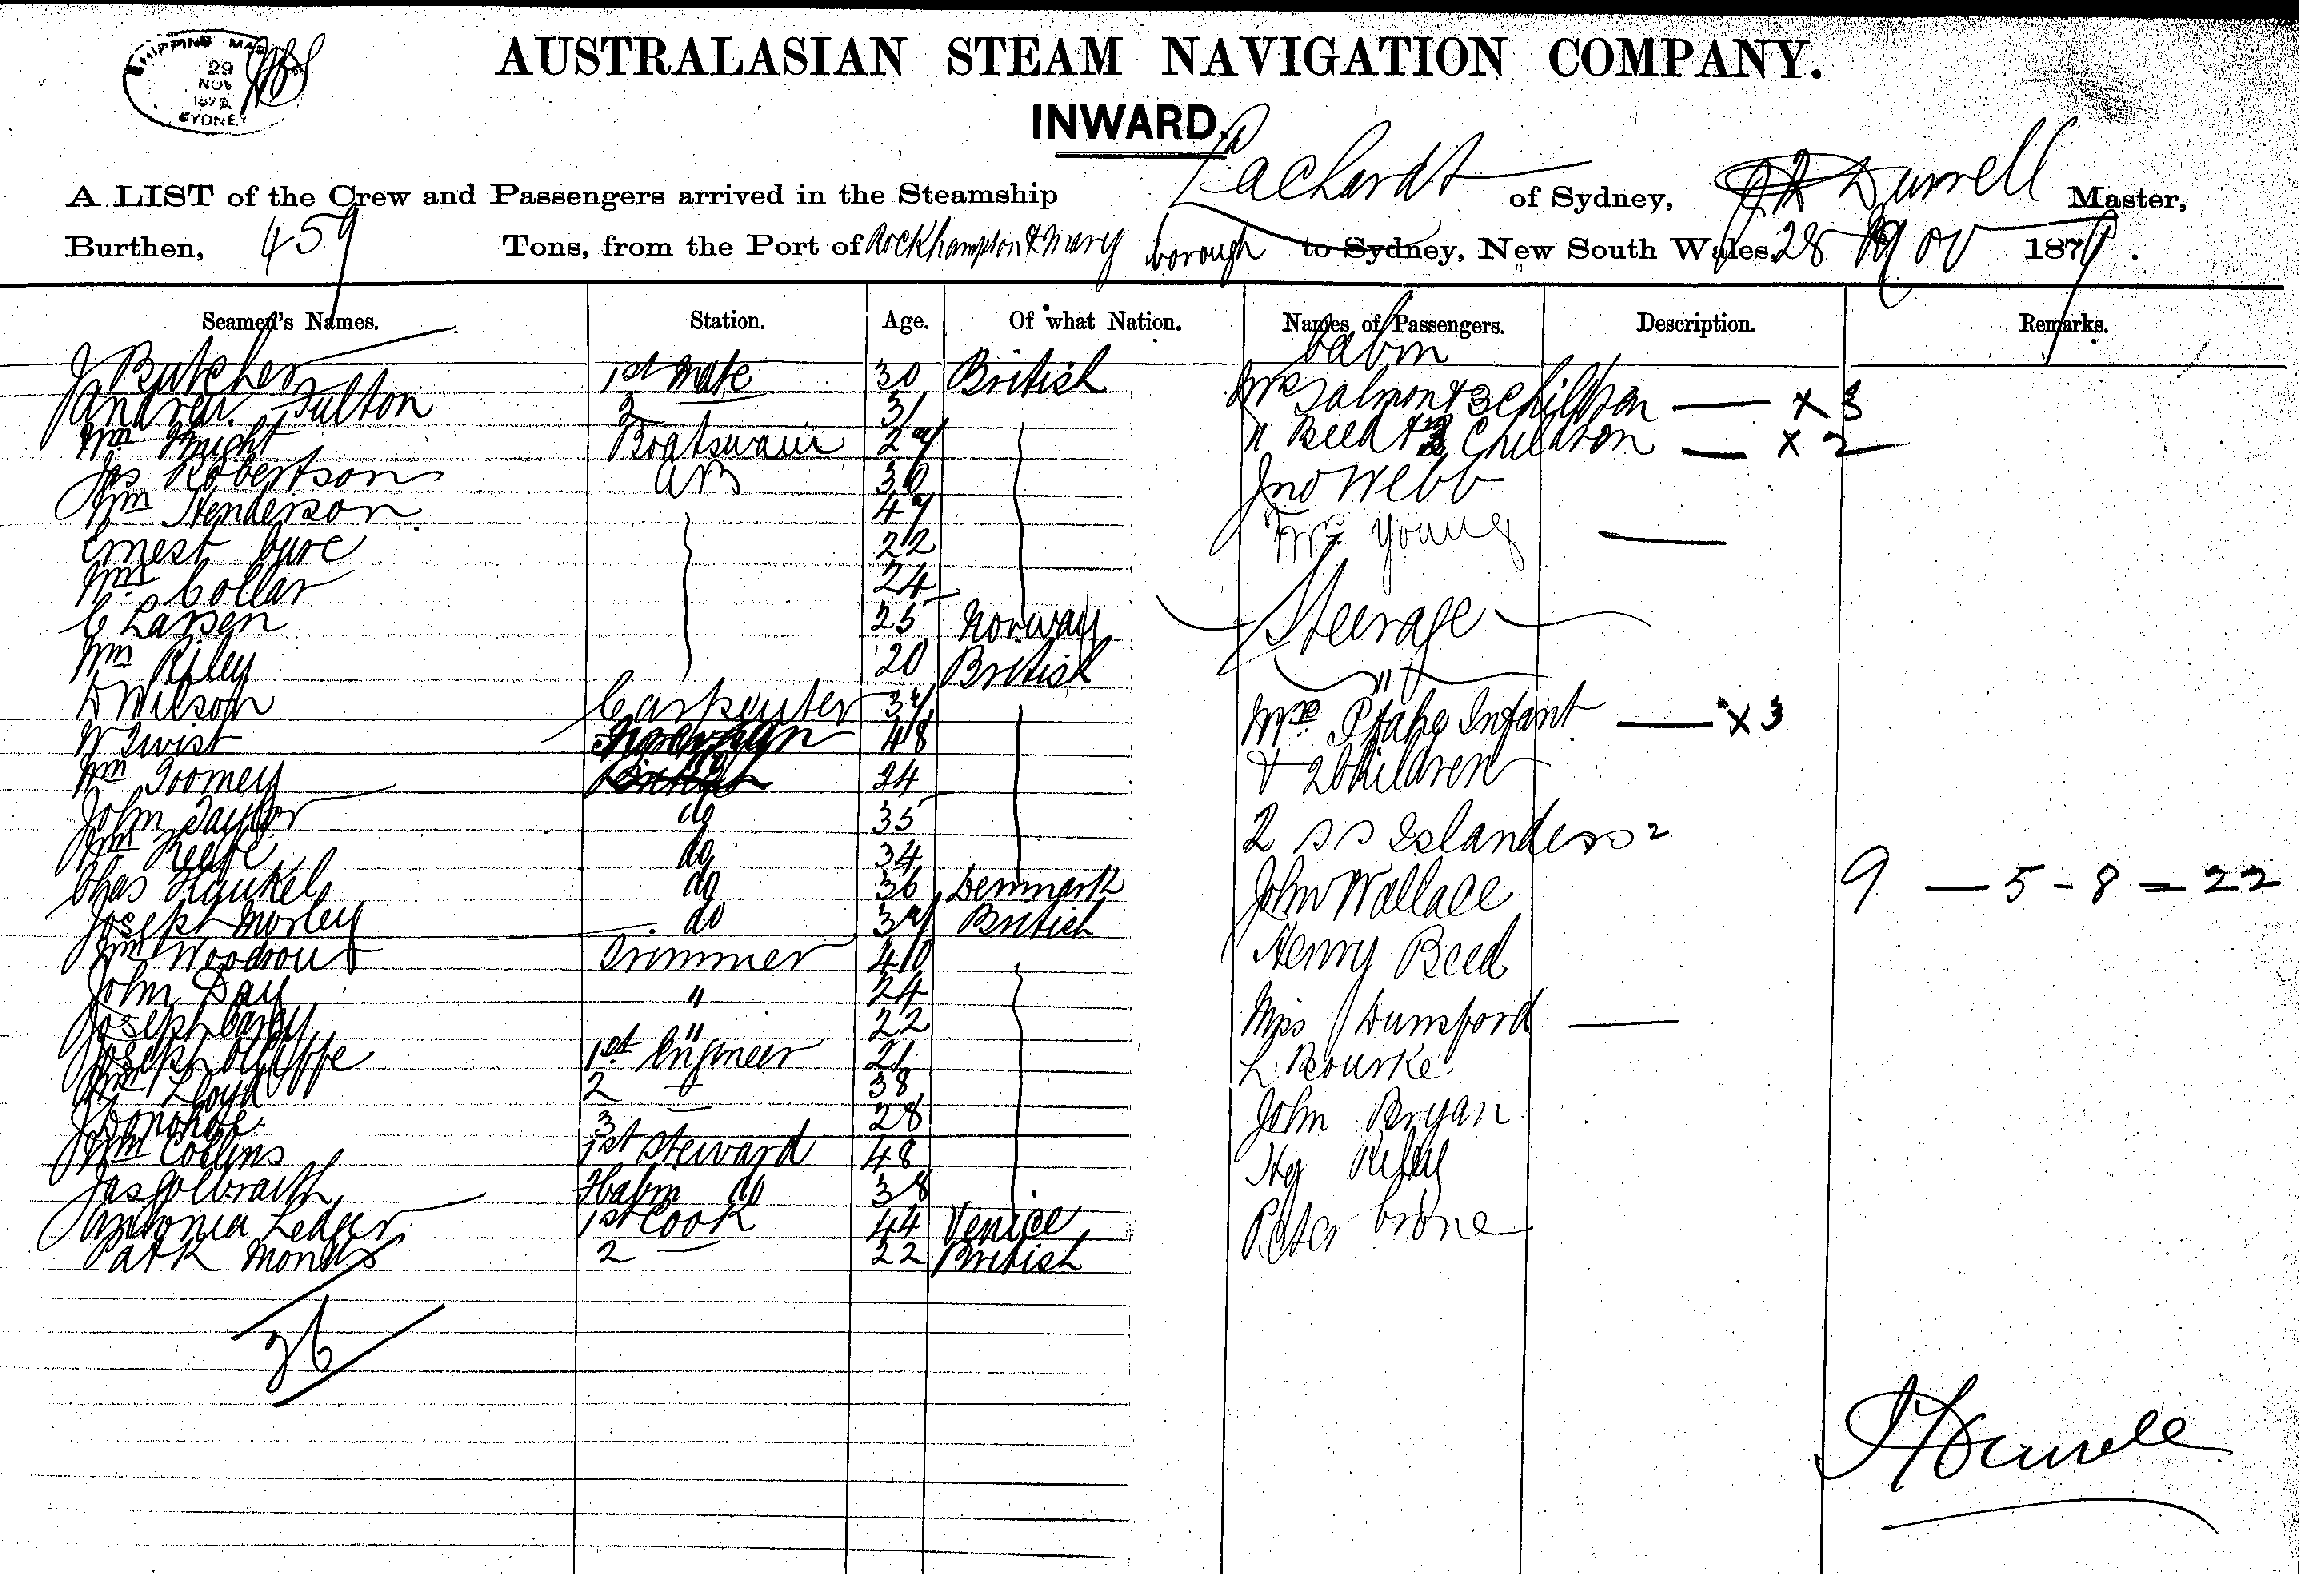 SHIPPING MAS
29
NOV
SYDNEY
AUSTRALASIAN STEAM NAVIGATION COMPANY.
INWARD.
A LIST of the Crew and Passengers arrived in the Steamship Leichardt of Sydney, Durrell Master,
Burthen, 459 Tons, from the Port of Rockhampton & Maryborough to Sydney, New South Wales, 28 Nov 1879.
Seamen's Names. Station. Age. Of what Nation. Names of Passengers. Description. Remarks.
Cabin
J Butcher 1st Mate 30 British Mrs Salmon & 3 Children — x 3
Andrew Fulton 2 31 " Reed & 2 Children — x 2
Wm Knight Boatswain 29
Jas Robertson AB 30 Jno Webb
Wm Henderson 47 Mrs Young —
Ernest 22
Wm Collar 24
C Larsen 25 Norway Steerage
Wm Riley 20 British
D Wilson Carpenter 39 Mrs Infant — x 3
W Twist 48 & 2 Children
Wm Toomey 24
John Taylor do 35 2 S S Islanders 2
Wm Keefe do 34
Chas Hankel do 36 Denmark John Wallace 9 — 5 - 8 = 22
Joseph Morley do 39 British
Wm Woodrout Trimmer 40 Henry Reed
John Day " 24
Joseph " 22 Miss Dunsford —
Joseph 1st Engineer 21 L Bourke
Wm Lloyd 2 38
J Donohoe 3 28 John Bryan
Wm Collins 1st Steward 48 Hy Riley
Jas Golbraith do 38
Antonia Ledger 1st Cook 44 Venice Peter Crone
Patk 2 22 British
26
Durrell